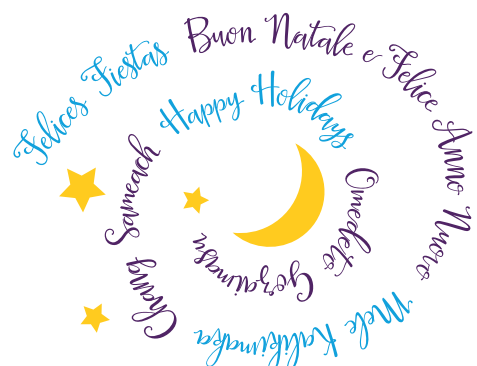 Felices Fiestas
Buon Natale e Felice Anno Nuovo
Mele Kalikimaka
Chang Sameach
Happy Holidays
Omedeto Gozaimasu